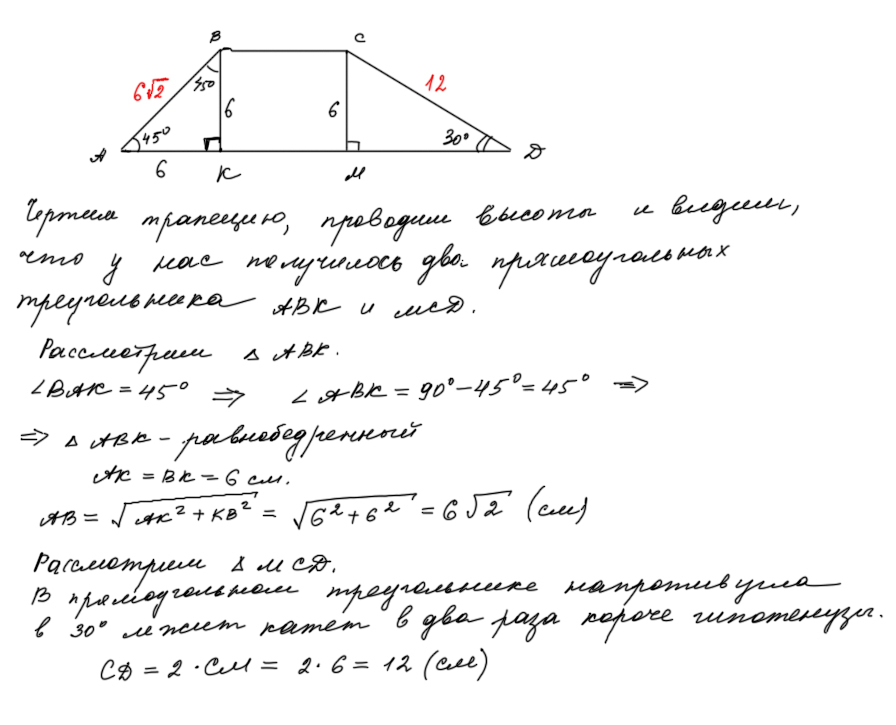 B C
6√2 12
45° 6 6
A 45° 30° D
6 K M
Чертим трапецию, проводим высоты и видим,
что у нас получилось два прямоугольных
треугольника ABK и MCD.
Рассмотрим △ ABK.
∠BAK = 45° ⟹ ∠ABK = 90° - 45° = 45° ⟹
⟹ △ ABK - равнобедренный
AK = BK = 6 см.
AB = √(AK² + KB²) = √(6² + 6²) = 6√2 (см)
Рассмотрим △ MCD.
В прямоугольном треугольнике напротив угла
в 30° лежит катет в два раза короче гипотенузы.
CD = 2 · CM = 2 · 6 = 12 (см)